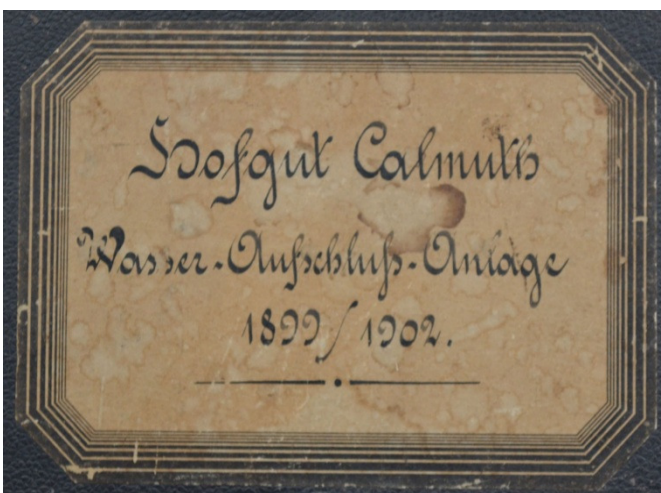 Hofgut Calmuth
Wasser-Aufschluß-Anlage
1899/1902.